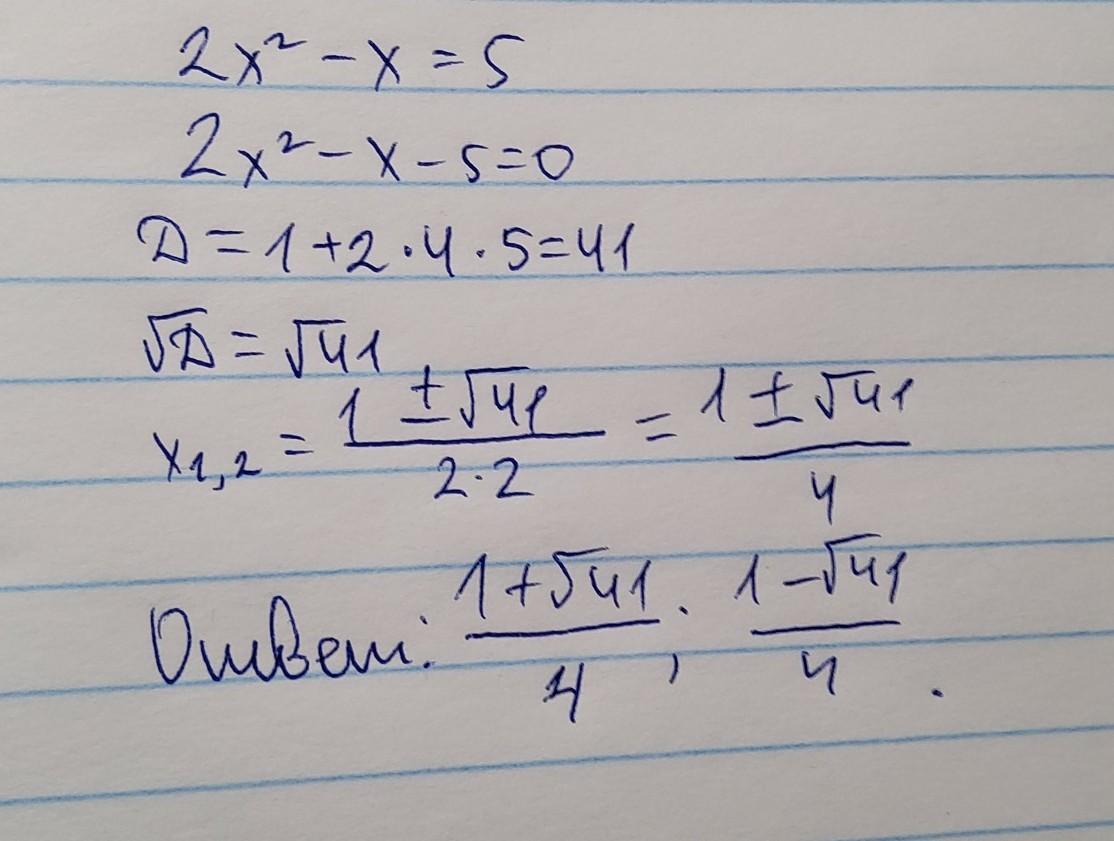 2x² - x = 5
2x² - x - 5 = 0
D = 1 + 2 · 4 · 5 = 41
√D = √41
x₁,₂ = (1 ± √41)/(2·2) = (1 ± √41)/4
Ответ: (1 + √41)/4 ; (1 - √41)/4 .